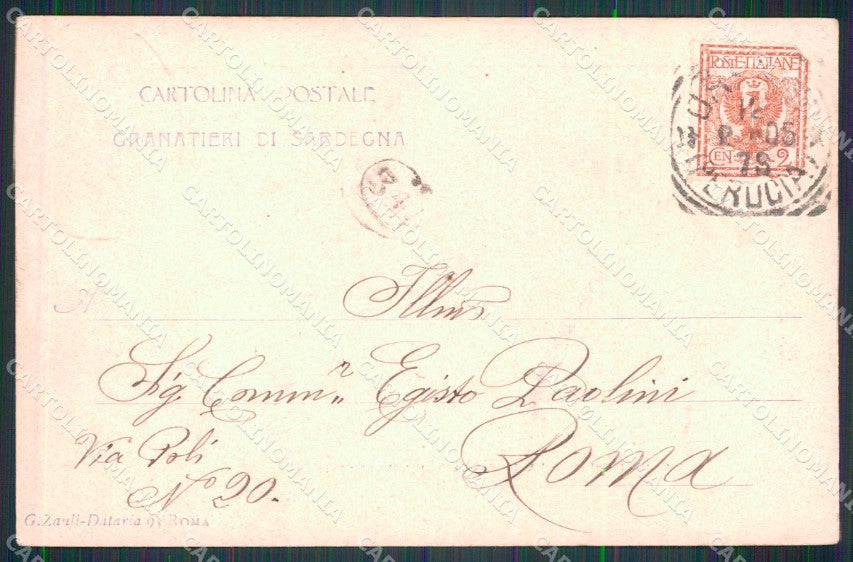 CARTOLINA POSTALE
GRANATIERI DI SARDEGNA
POSTE ITALIANE
CEN 2
05
7S
PERUGIA
Illmo
Sig. Comm.r Egisto Paolini
Via Poli
Roma
No 20.
G. Zauli-Dataria 91 ROMA
CARTOLINOMANIA